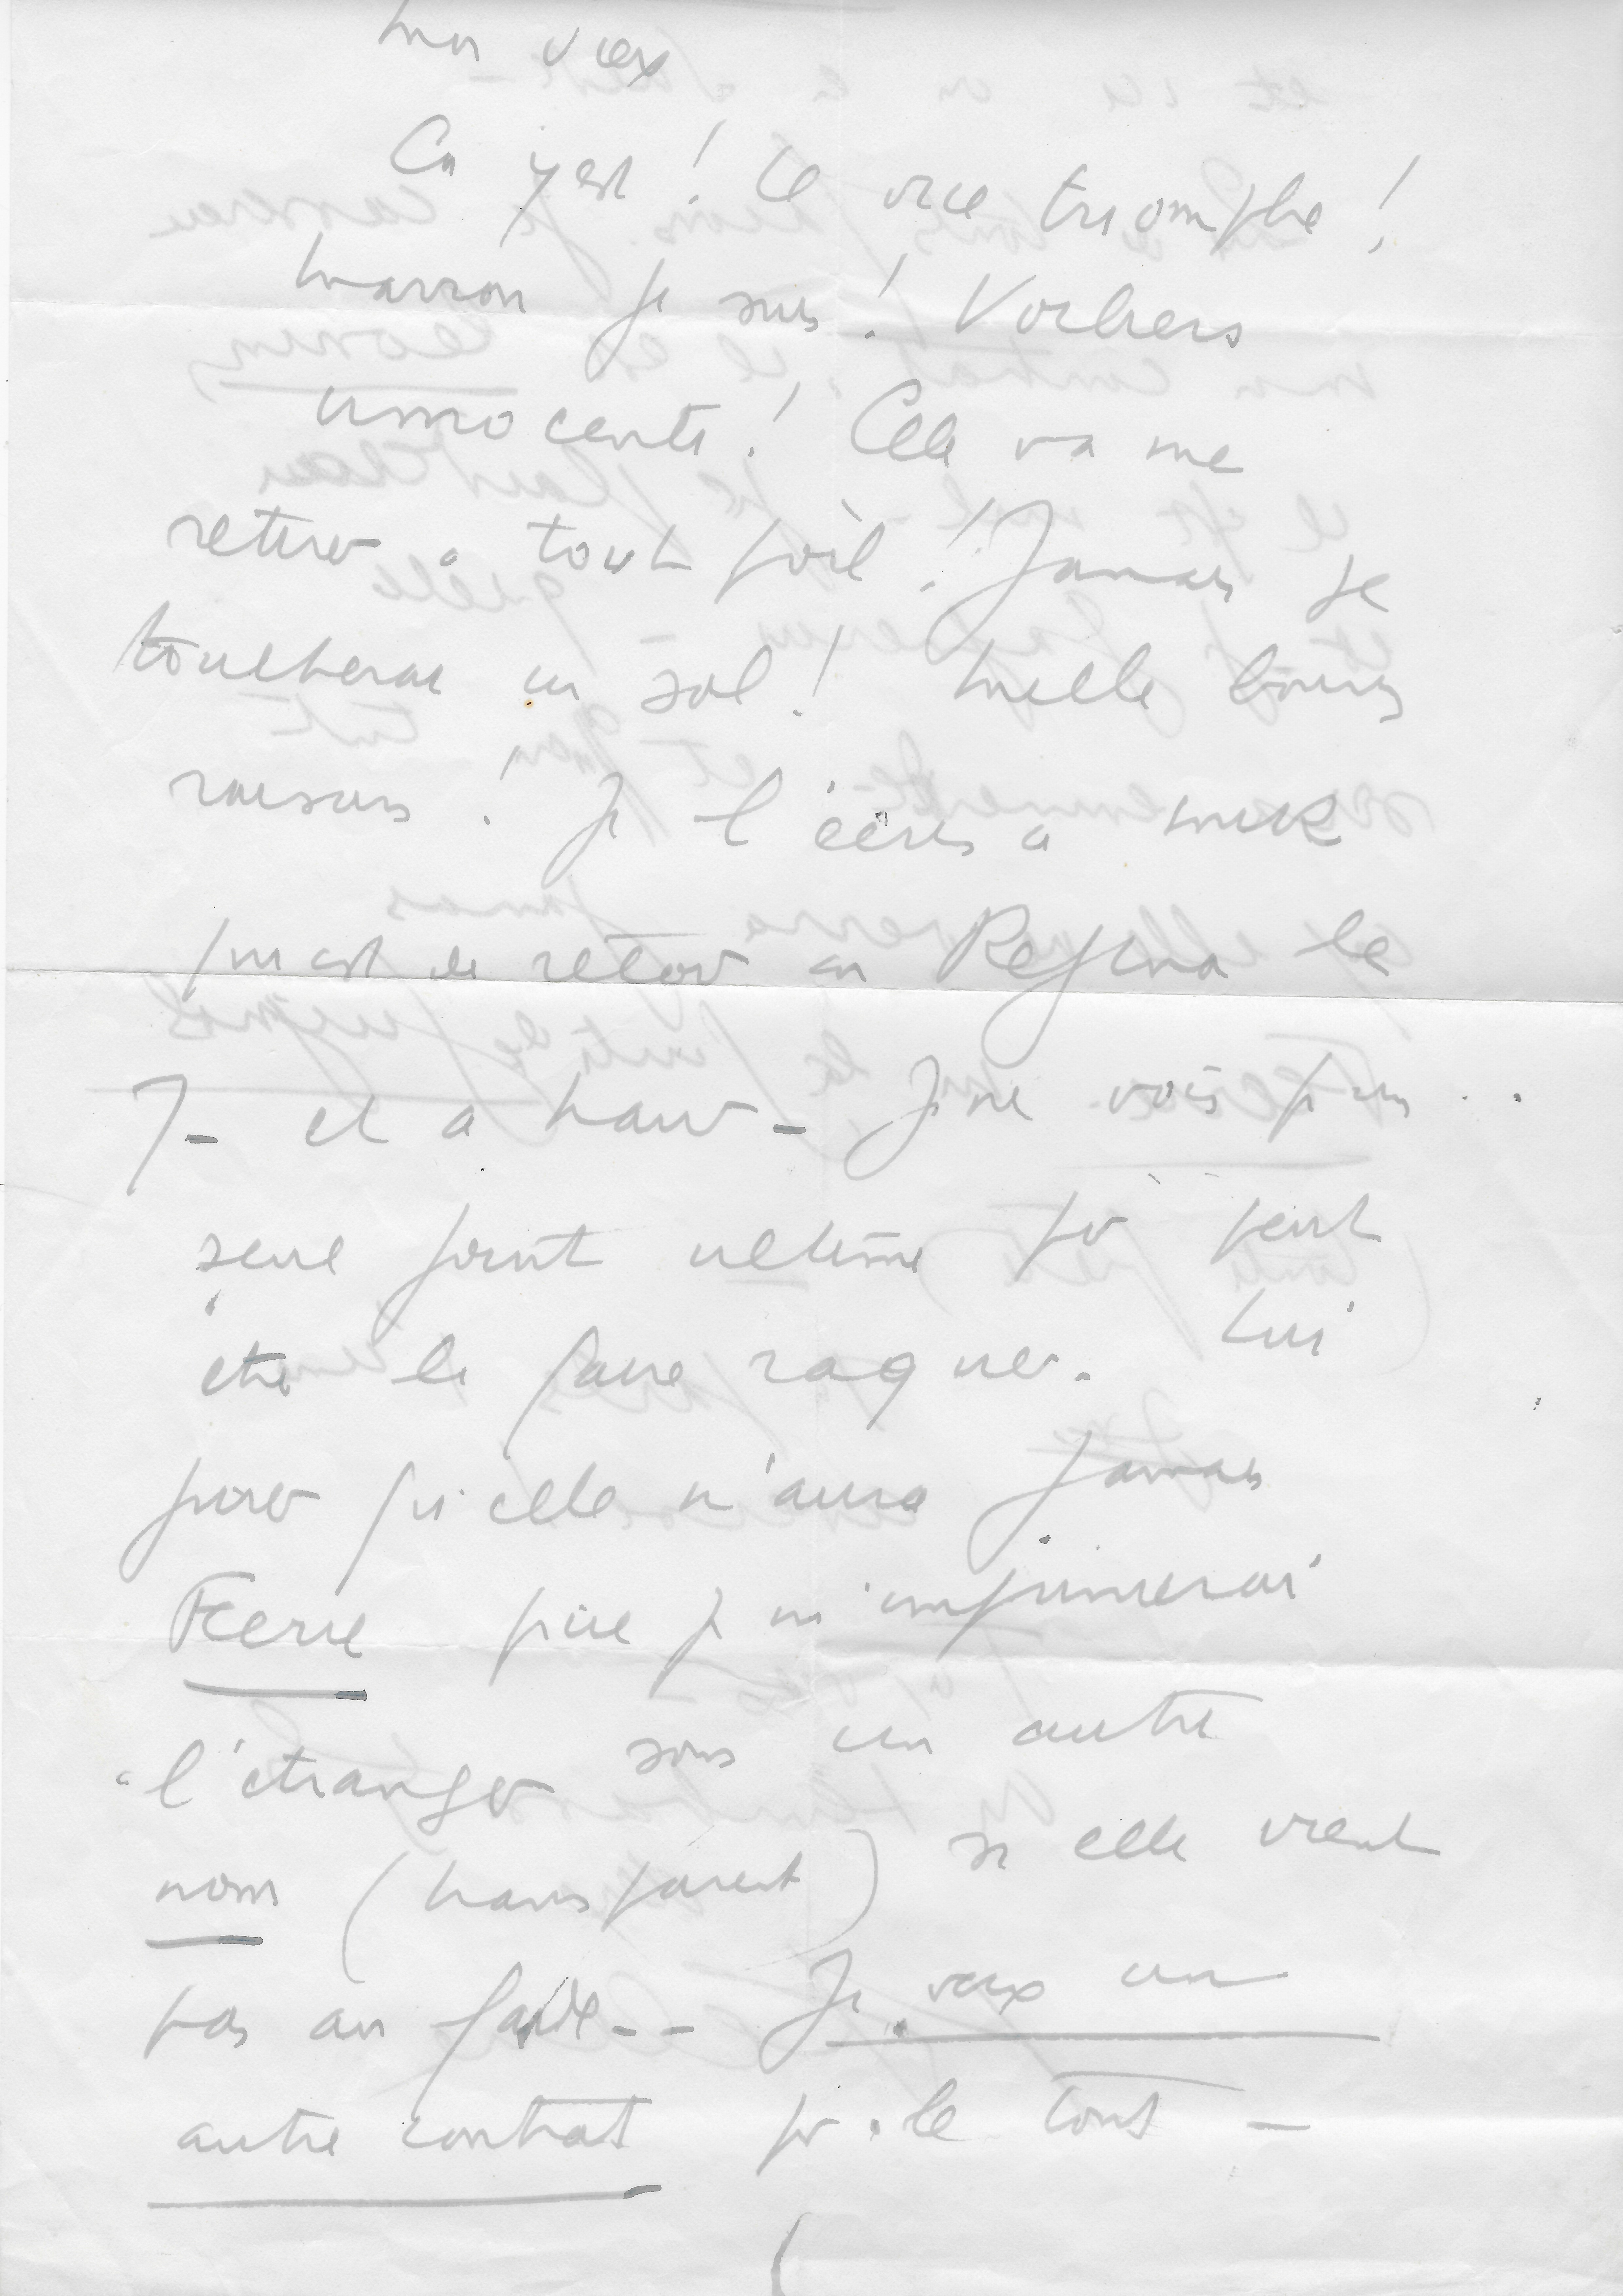 Mon vieux
Ca y est ! le vice triomphe !
marron je suis ! Voilier
innocente ! Cela va me
retirer à tout poil ! Jamais je
toucherai un sol ! mille bonnes
raisons ! Je l'écris à
qui est de retour au Regina le
7 - et a
Je ne vois
seul point ultime pr peut
être le faire raquer. Lui
jurer qu'elle n'aura jamais
Féerie que je m'imprimerai
à l'étranger sous un autre
nom (transparent) si elle vient
pas au fade -- Je veux un
autre contrat pr le tout -
(